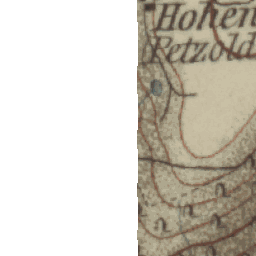 Hohen
Petzold